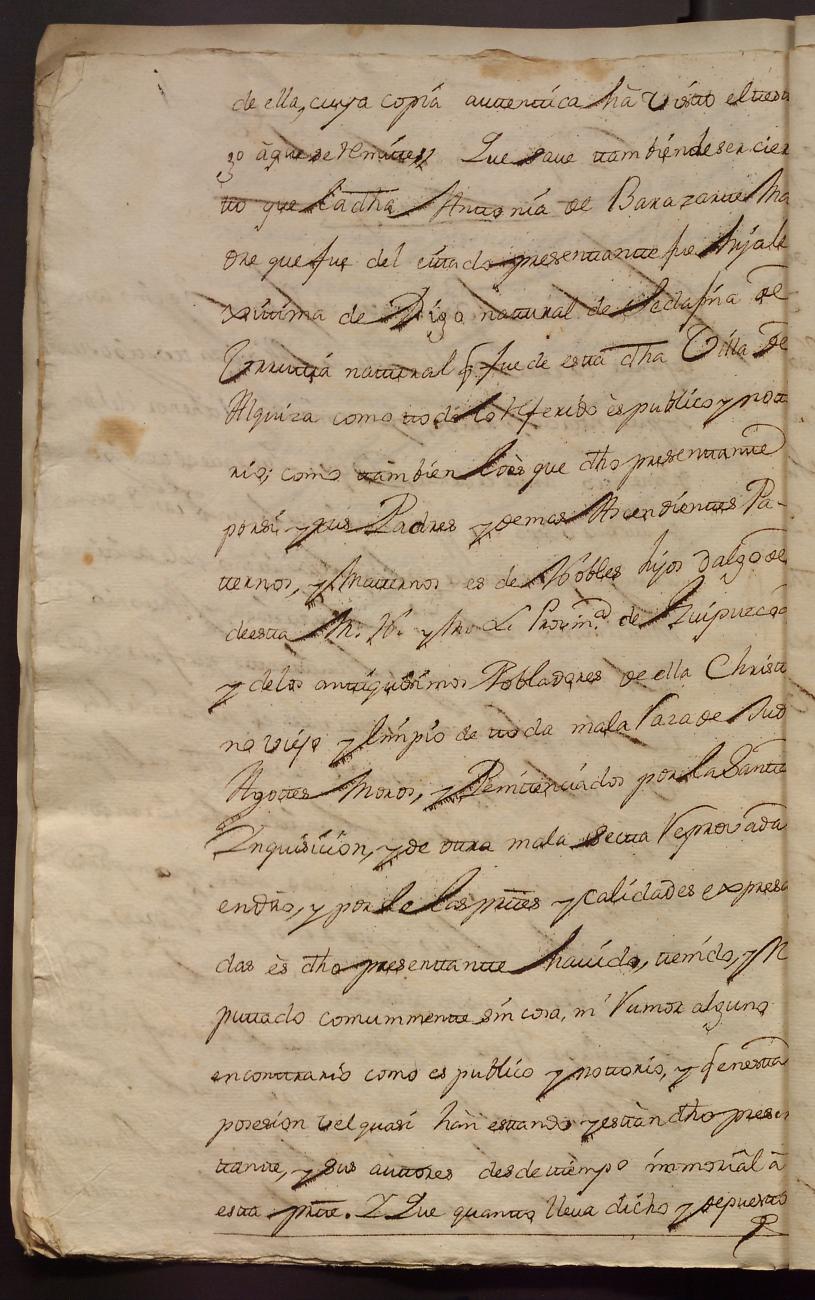 de ella, cuya copia autentica hà visto el testi
go à que se remite; Que save tambien de ser cier
to que la dha Antonia de Barazarte Ma
dre que fue del citado presentante fue hija le
xitima de Digo natural de Sedafña de
Vrrutia natural q fue de esta dha Villa de
Alquiza como todo lo referido ès publico y noto
rio; como tambien lo ès que dho presentante
por si y sus Padres y demas Ascendientes Pa-
ternos, y Maternos es de Nobles hijos dalgo de
de esta M. N. y M. L. Provinᵃ de Guipuzcoa
y de los antiquisimos Pobladores de ella Christia
no viejo y limpio de toda mala raza de Jud
Agotes Moros, y Penitenciados por la Santa
Inquisicion, y de otra mala secta reprovada
en dro, y por de las ptes y calidades expresa
das ès dho presentante havido, tenido, y re
putado comunmente sin cosa, ni rumor alguno
en contrario como es publico y notorio, y q en esta
posesion vel quasi hàn estando y estàn dho presen
tante, y sus autores desde tiempo inmorial à
esta pte. Y Que quanto lleva dicho y depuesto